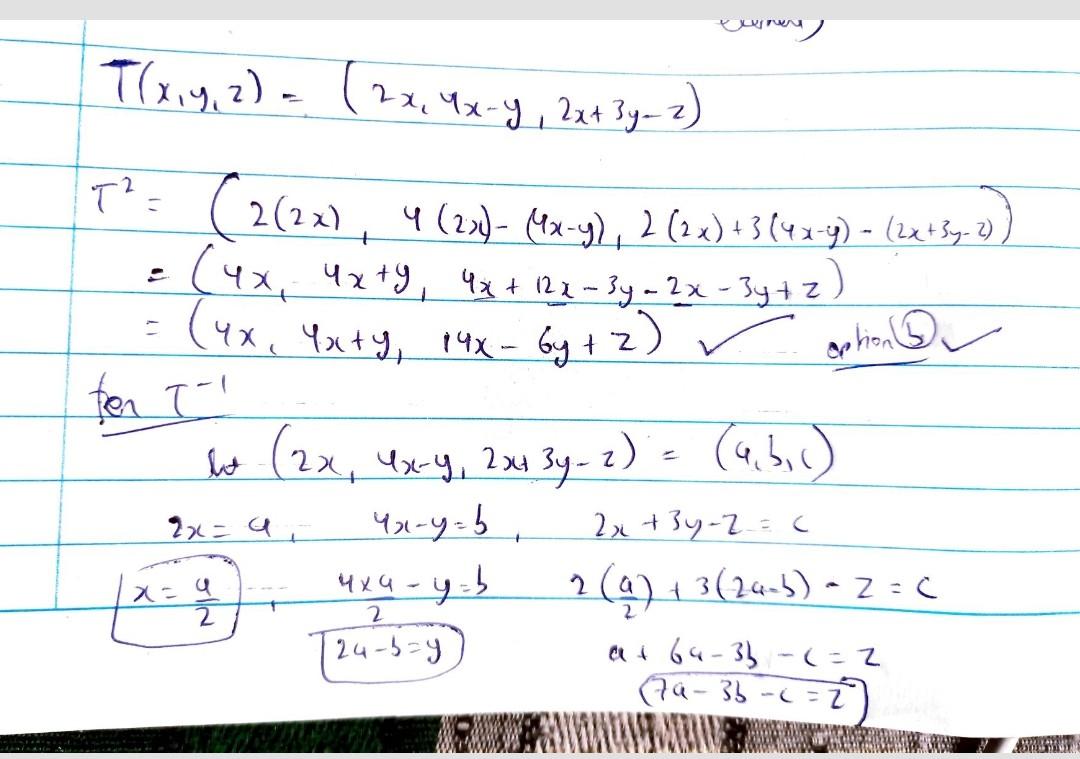 T(x,y,z) = (2x, 4x-y, 2x+3y-z)
T² = (2(2x), 4(2x)-(4x-y), 2(2x)+3(4x-y)-(2x+3y-z))
= (4x, 4x+y, 4x+12x-3y-2x-3y+z)
= (4x, 4x+y, 14x-6y+z) ✓ option (b) ✓
for T⁻¹
let (2x, 4x-y, 2x+3y-z) = (a,b,c)
2x=a, 4x-y=b, 2x+3y-z=c
x=a/2, 4xa/2-y=b 2(a/2)+3(2a-b)-z=c
2a-b=y a+6a-3b-c=z
7a-3b-c=z